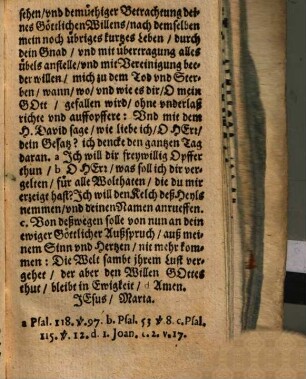 sehen/vnd demüthiger Betrachtung dei-
nes Göttlichen Willens/nach demselben
mein noch übriges kurtzes Leben / durch
dein Gnad / vnd mit übertragung alles
übels anstelle/vnd mit Vereinigung bee-
der willen / mich zu dem Tod vnd Ster-
ben / wann/ wo/ vnd wie es dir/ O mein
GOtt / gefallen wird / ohne vnderlaß
richte vnd auffopffere: Vnd mit dem
H. David sage / wie liebe ich / O HErr/
dein Gesatz? ich dencke den gantzen Tag
daran. a Jch will dir freywillig Opffer
thun / b O HErr / was soll ich dir ver-
gelten / für alle Wolthaten / die du mir
erzeigt hast? Jch will den Kelch deß Heyls
nemmen/ vnd deinen Namen anrueffen.
c. Von deßwegen solle von nun an dein
ewiger Göttlicher Außspruch / auß mei-
nem Sinn vnd Hertzen / nit mehr kom-
men : Die Welt sambt jhrem Lust ver-
gehet / der aber den Willen GOttes
thut / bleibt in Ewigkeit / d Amen.
JEsus / Maria.
a Psal. 118. v. 97. b. Psal. 53 v. 8. c. Psal.
115. v. 12. d. 1. Joan. c. 2. v. 17.